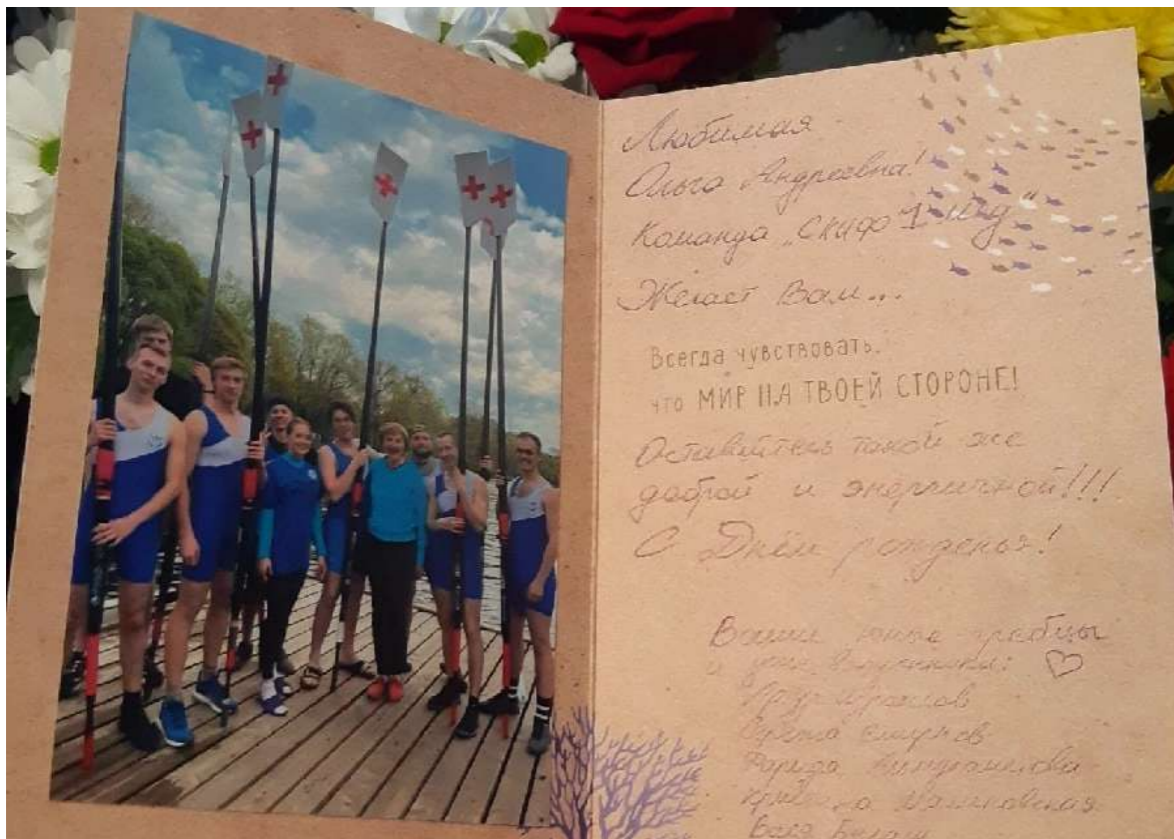 Любимая
Ольга Андреевна!
Команда „Скиф 1 мед"
Желает Вам...
Всегда чувствовать,
что МИР НА ТВОЕЙ СТОРОНЕ!
Оставайтесь такой же
доброй и энергичной!!!
С Днём рожденья!
Ваши юные гребцы
и уже выпускники:
Фарида
Вася